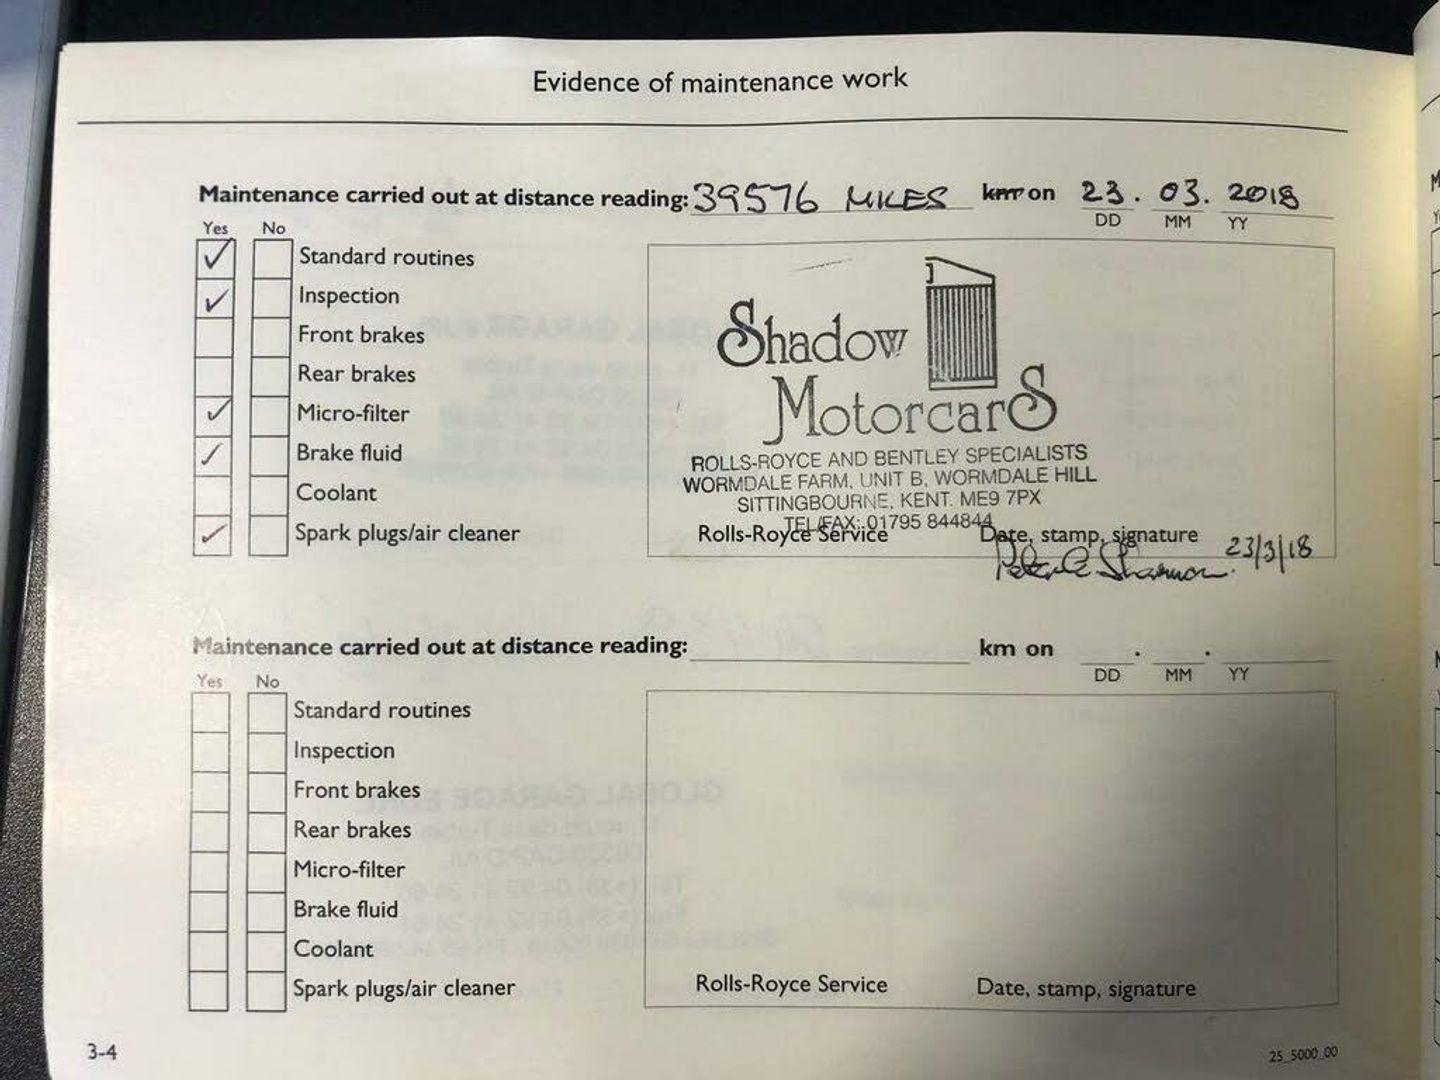 Evidence of maintenance work
Maintenance carried out at distance reading: 39576 MILES km on 23. 03. 2018
DD MM YY
Yes No
✓ Standard routines
✓ Inspection
Front brakes
Rear brakes
✓ Micro-filter
✓ Brake fluid
Coolant
✓ Spark plugs/air cleaner
Shadow
MotorcarS
ROLLS-ROYCE AND BENTLEY SPECIALISTS
WORMDALE FARM, UNIT B, WORMDALE HILL
SITTINGBOURNE, KENT. ME9 7PX
TEL/FAX: 01795 844844
Rolls-Royce Service Date, stamp, signature
23/3/18
Maintenance carried out at distance reading: km on . .
DD MM YY
Yes No
Standard routines
Inspection
Front brakes
Rear brakes
Micro-filter
Brake fluid
Coolant
Spark plugs/air cleaner
Rolls-Royce Service Date, stamp, signature
3-4
25_5000_00